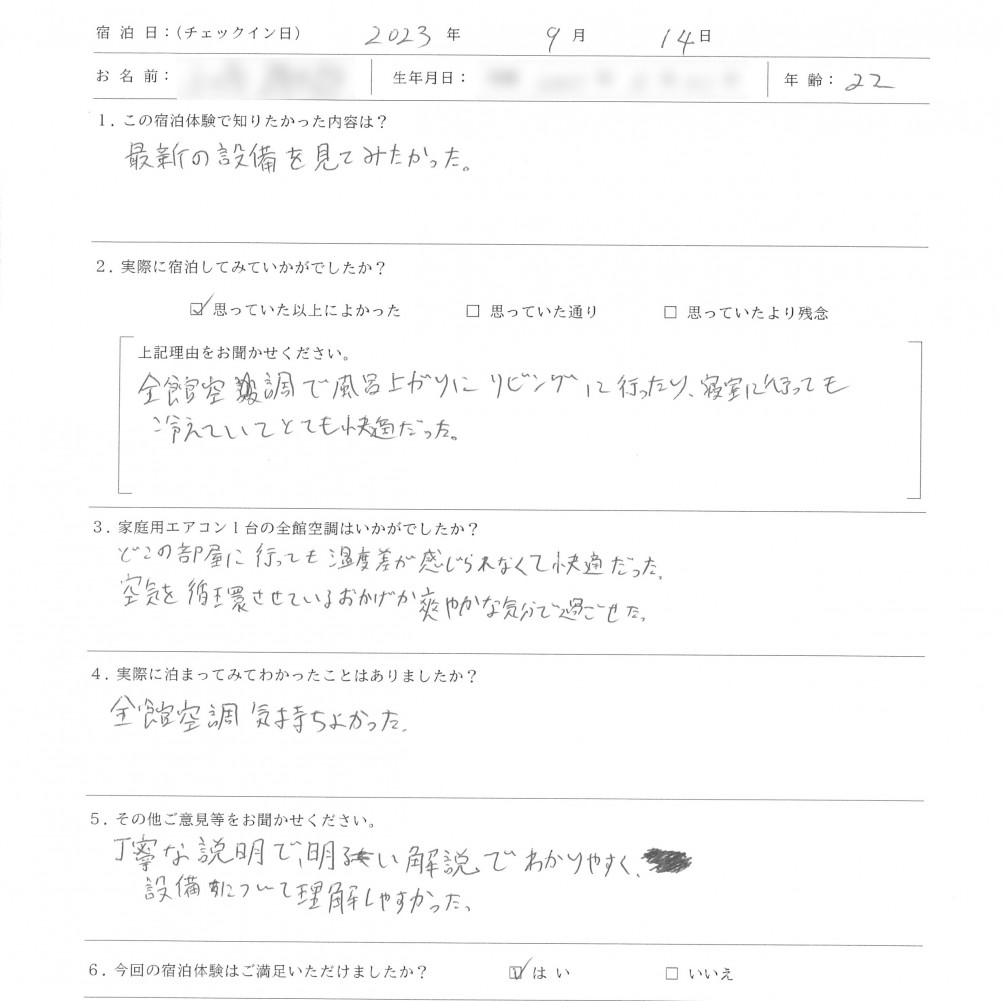 宿泊日:(チェックイン日) 2023年 9月 14日
お名前: 生年月日: 年齢: 22
1. この宿泊体験で知りたかった内容は?
最新の設備を見てみたかった。
2. 実際に宿泊してみていかがでしたか?
☑ 思っていた以上によかった □ 思っていた通り □ 思っていたより残念
上記理由をお聞かせください。
全館空調で風呂上がりにリビングに行ったり、寝室に行っても
冷えていてとても快適だった。
3. 家庭用エアコン1台の全館空調はいかがでしたか?
どこの部屋に行っても温度差が感じられなくて快適だった。
空気を循環させているおかげか爽やかな気分で過ごせた。
4. 実際に泊まってみてわかったことはありましたか?
全館空調気持ちよかった。
5. その他ご意見等をお聞かせください。
丁寧な説明で、明るい解説でわかりやすく、
設備について理解しやすかった。
6. 今回の宿泊体験はご満足いただけましたか? ☑ はい □ いいえ